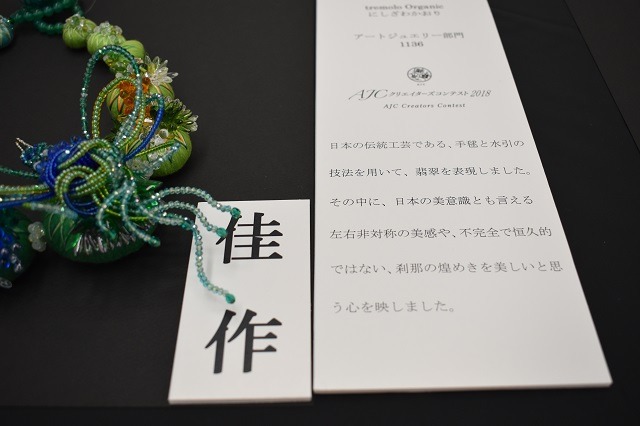 tremolo Organic
にしざわかおり
アートジュエリー部門
1136
AJCクリエイターズコンテスト2018
AJC Creators Contest
日本の伝統工芸である、手毬と水引の
技法を用いて、翡翠を表現しました。
その中に、日本の美意識とも言える
左右非対称の美感や、不完全で恒久的
ではない、刹那の煌めきを美しいと思
う心を映しました。
佳
作